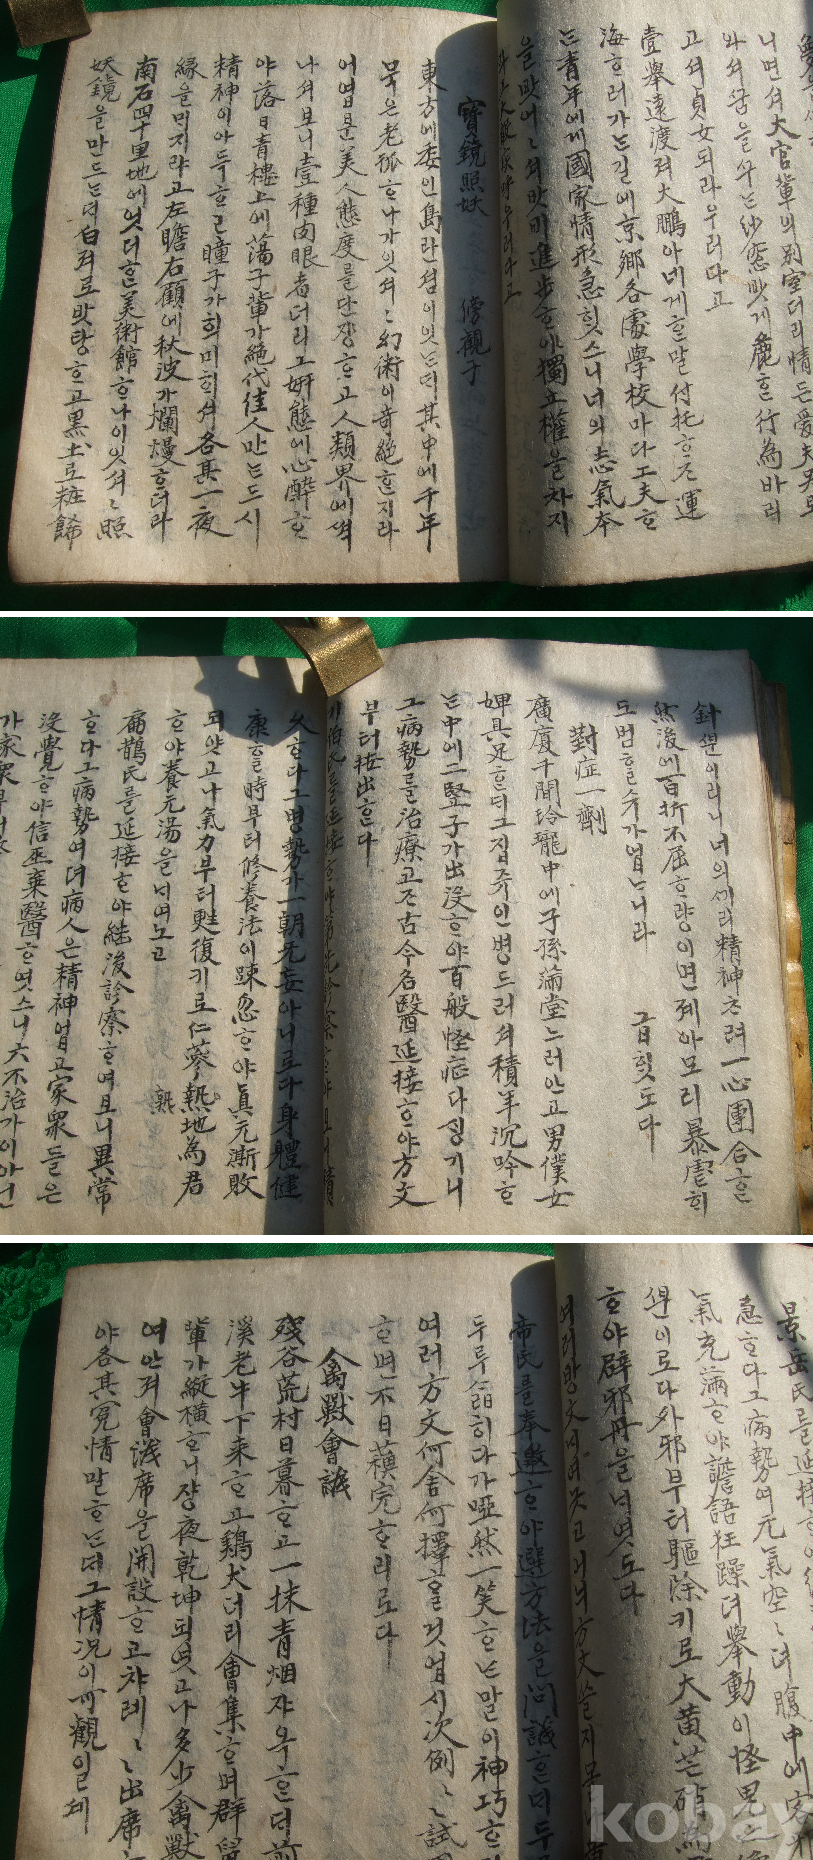 니면셔大官軰의別室더리情든愛夫男
와셔꿈을ᄭᅮ는紗窓밧게麁ᄒᆞᆫ行為바리
고셔貞女되라우러다고
壹擧遠渡져大鵬아네게ᄒᆞᆯ말付托ᄒᆞᄌᆞ運
海ᄒᆞ러가는길에京鄕各處學校마다工夫ᄒᆞ
는靑年에게國家情形急힛스니너의志氣本
을맛어〻셔밧비進步ᄒᆞ야獨立權을차지
寶鏡照妖 傍觀子
東方에委인島란셤이잇는ᄃᆡ其中에千年
묵은老狐ᄒᆞ나가잇셔〻幻術이奇絶ᄒᆞᆫ지라
어엽분美人態度를단장ᄒᆞ고人類界에ᄶᅥᆨ
나셔보니壹種肉眼者더리그姸態에心醉ᄒᆞ
야落日靑樓上에蕩子軰가絶代佳人만는드시
精神이아득ᄒᆞ고瞳子가희미희셔各其一夜
緣을ᄆᆡ지랴고左瞻右顧에秋波가爛熳ᄒᆞ더라
南石四十里地에엇더ᄒᆞᆫ美術館ᄒᆞ나이잇셔〻照
妖鏡을만드는ᄃᆡ白져로밧탕ᄒᆞ고黑土로粧餙
針ᄲᅮᆫ이리니너의셰리精神ᄎᆞ려一心團合ᄒᆞᆫ
然後에百折不屈ᄒᆞ량이면졔아모리暴虐희
도범ᄒᆞᆯ수가업ᄂᆞ니라 급힛도다
對症一劑
廣廈千間玲瓏中에子孫滿堂느러안고男僕女
婢具足ᄒᆞᆫᄃᆡ그집쥬인병드러셔積年沉吟ᄒᆞ
는中에二竪子가出沒ᄒᆞ야百般怪症다싱기니
그病勢를治療고ᄌᆞ古今名醫延接ᄒᆞ야方文
부터按出ᄒᆞᆫ다
久ᄒᆞ다그병勢가一朝旡妄아니로다身軆健
康ᄒᆞᆯ時부터修養法이踈忽ᄒᆞ야眞元漸敗
되얏고나氣力부터甦復기로仁蔘熟地為君
ᄒᆞ야養元湯을ᄂᆡ여노고
扁鵲氏를延接ᄒᆞ야繼後診察ᄒᆞ여보니異常
ᄒᆞ다그病勢여뎌病人은精神업고家衆들은
沒覺ᄒᆞ야信巫棄醫ᄒᆞ엿스니六不治가이아닌
景岳氏를延接ᄒᆞ야
急ᄒᆞ다그病勢여元氣空〻뎌腹中에客邪
氣充滿ᄒᆞ야譫語狂躁뎌擧動이怪鬼
ᄲᅮᆫ이로다外邪부터驅除키로大黃芒硝為
ᄒᆞ야辟邪丹을ᄂᆡ엿도다
여러방文ᄂᆡ여놋코
帝氏를奉邀ᄒᆞ야選方法을問議ᄒᆞᆫᄃᆡ두
두루슯히다가啞然一笑ᄒᆞ는말이神巧ᄒᆞ
여러方文何舍何擇ᄒᆞᆯ것업시次例〻試
ᄒᆞ면不日蘓完ᄒᆞ리로다
禽獸會議
殘谷荒村日暮ᄒᆞ고一抹靑烟쟈욱ᄒᆞᆫᄃᆡ前
溪老牛下来ᄒᆞ고鷄犬더리會集ᄒᆞ며群鼠
軰가縱橫ᄒᆞ니쟝夜乾坤되엿고나多少禽獸
여안져會議席을開設ᄒᆞ고챠례〻出席
야各其冤情말ᄒᆞ는ᄃᆡ그情况이可觀일셰
kobay